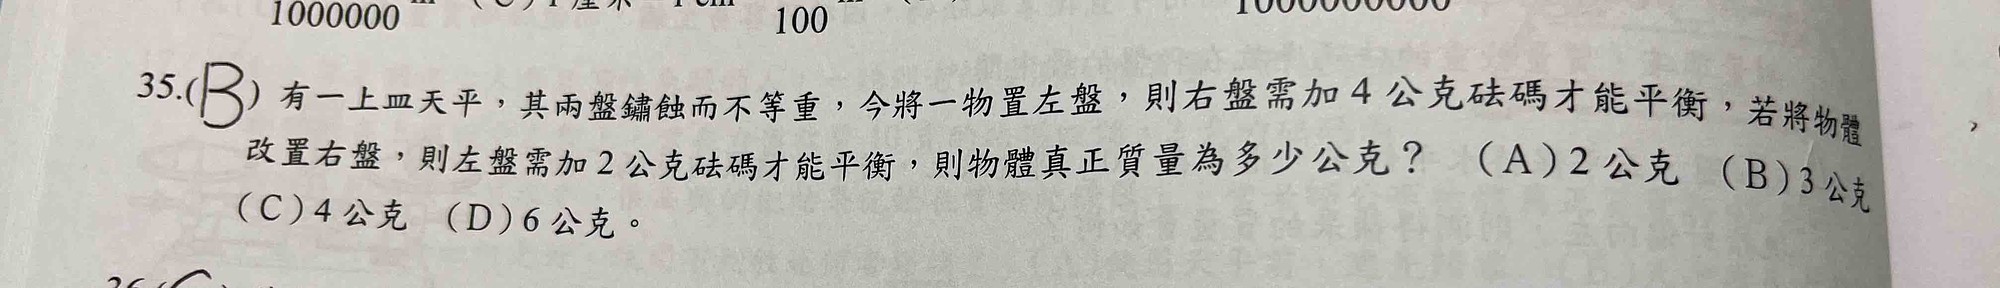 1000000
100
35.(B) 有一上皿天平，其兩盤鏽蝕而不等重，今將一物置左盤，則右盤需加 4 公克砝碼才能平衡，若將物體
改置右盤，則左盤需加 2 公克砝碼才能平衡，則物體真正質量為多少公克？ (A) 2 公克 (B) 3 公克
(C) 4 公克 (D) 6 公克。